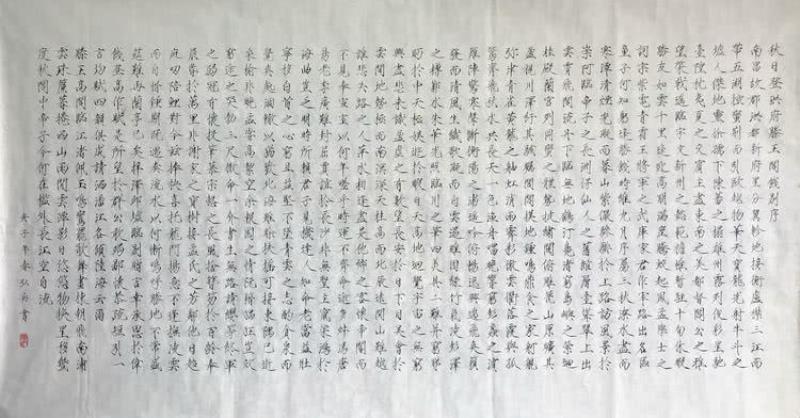 秋日登洪府滕王閣餞別序
南昌故郡新府星分翼軫地接衡廬襟三江而
帶五湖控蠻荊而引甌越物華天寶龍光射牛斗之
墟人傑地靈徐孺下陳蕃之榻雄州霧列俊彩星馳
臺隍枕夷夏之交賓主盡東南之美都督閻公之雅
望棨戟遙臨宇文新州之懿範襜帷暫駐十旬休暇
勝友如雲千里逢迎高朋滿座騰蛟起鳳孟學士之
詞宗紫電青霜王將軍之武庫家君作宰路出名區
童子何知躬逢勝餞時維九月序屬三秋潦水盡而
寒潭清煙光凝而暮山紫儼驂騑於上路訪風景於
崇阿臨帝子之長洲得仙人之舊館層臺聳翠上出
雲霄飛閣流丹下臨無地鶴汀鳧渚窮島嶼之縈迴
桂殿蘭宮列岡巒之體勢披繡闥俯雕甍山原曠其
盈視川澤紆其駭矚閭閻撲地鐘鳴鼎食之家舸艦
彌津青雀黃龍之舳虹消雨霽彩徹雲衢落霞與孤
鶩齊飛秋水共長天一色漁舟唱晚響窮彭蠡之濱
雁陣驚寒聲斷衡陽之浦遙吟俯暢逸興遄飛爽籟
發而清風生纖歌凝而白雲遏睢園綠竹氣凌彭澤
之樽鄴水朱華光照臨川之筆四美具二難并窮睇
眄於中天極娛遊於暇日天高地迥覺宇宙之無窮
興盡悲來識盈虛之有數望長安於日下目吳會於
雲間地勢極而南溟深天柱高而北辰遠關山難越
誰悲失路之人萍水相逢盡是他鄉之客懷帝閽而
不見奉宣室以何年嗟乎時運不齊命途多舛馮唐
易老李廣難封屈賈誼於長沙非無聖主竄梁鴻於
海曲豈乏明時所賴君子見機達人知命老當益壯
寧移白首之心窮且益堅不墜青雲之志酌貪泉而
覺爽處涸轍以猶歡北海雖賒扶搖可接東隅已逝
桑榆非晚孟嘗高潔空餘報國之情阮籍猖狂豈效
窮途之哭勃三尺微命一介書生無路請纓等終軍
之弱冠有懷投筆慕宗愨之長風捨簪笏於百齡奉
晨昏於萬里非謝家之寶樹接孟氏之芳鄰他日趨
庭叨陪鯉對今茲捧袂喜托龍門楊意不逢撫凌雲
而自惜鍾期既遇奏流水以何慚嗚呼勝地不常盛
筵難再蘭亭已矣梓澤邱墟臨別贈言幸承恩於偉
餞登高作賦是所望於群公敢竭鄙懷恭疏短引一
言均賦四韻俱成請灑潘江各傾陸海云爾
滕王高閣臨江渚佩玉鳴鸞罷歌舞畫棟朝飛南浦
雲珠簾暮捲西山雨閒雲潭影日悠悠物換星移幾
度秋閣中帝子今何在檻外長江空自流
庚子年春弘書